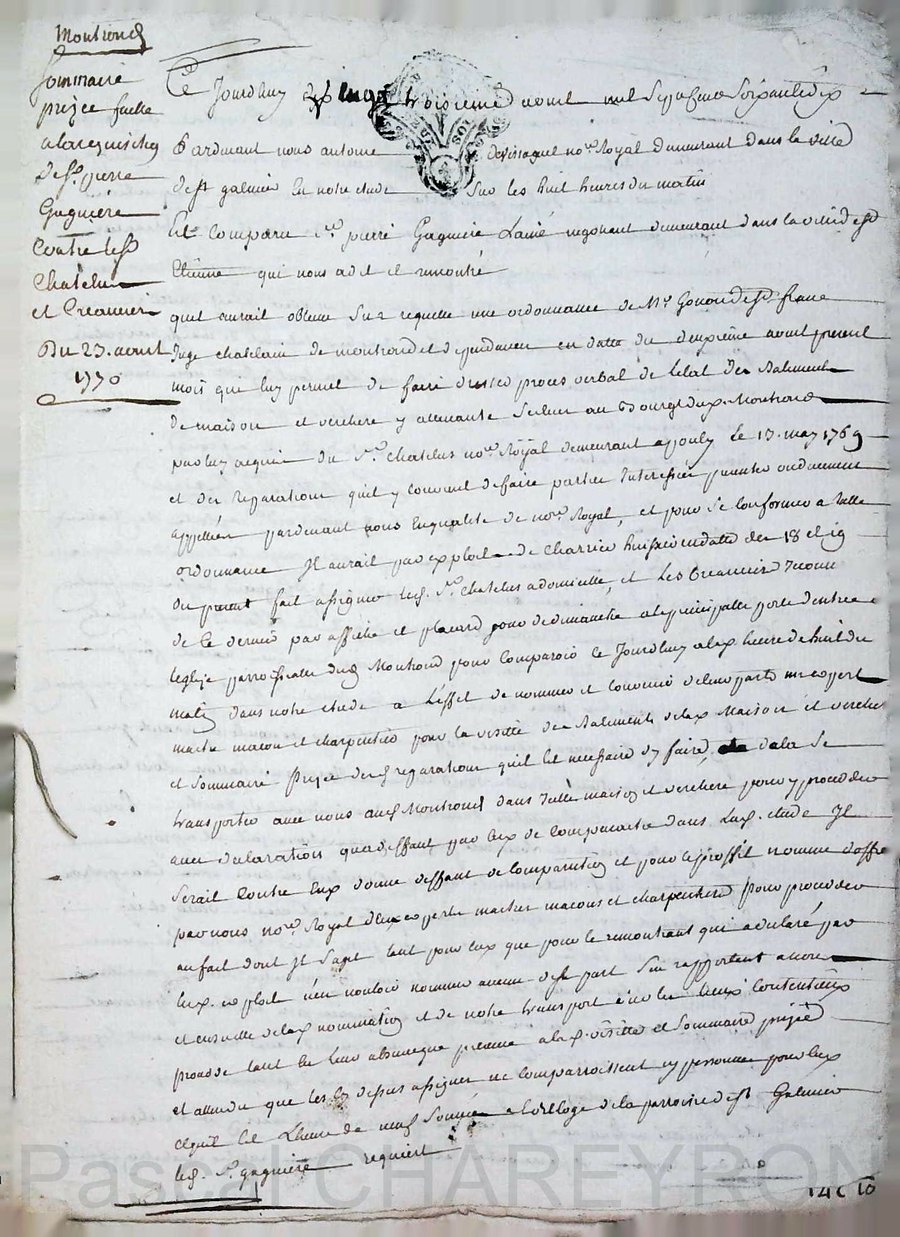 Montrond
Sommaire
prizee faitte
a la requisition
de Sr. pierre
Gagniere
Contre le sr
Chatelus
et Creanciers
Du 23. aoust
1770
Ce Jourdhuy vingt troisieme aoust mil Sept cent Soixante dix
Pardevant nous antoine devissaguet nore. Royal demeurant dans la ville
de st galmier En notre etude Sur les huit heures du matin
Est Comparu Sr. pierre Gagniere Lainé negotiant demeurant dans la ville de st
Etienne qui nous a dit et remontré
quil aurait obtenu Sur requette une ordonnance de Mr. Gonon de st franc
Juge chatelain de montrond et dependances en datte du deuxieme aoust present
mois qui luy permet de faire dresser proces verbal de letat des Batiments
de maison et verchere y attenante Scitues au Bourg dud. Montrond
par luy acquis du Sr. Chatelus nore. Royal demeurant a 13. may 1769
et des reparations quil y convient de faire parties Interessées presentes ou duement
appellées pardevant nous En qualité de nore. Royal, et pour Se Conformer a laditte
ordonnance Il aurait par exploit de Charrier huissier en datte des 18 et 19
du present fait assigner led. Sr. Chatelus a domicille, et Les Creanciers Inconnus
de Ce dernier par affiche et placard jour de dimanche a la principalle porte dentrée
leglise parroissialle dud. Montrond pour Comparoir Ce Jourdhuy a lad. heure de huit du
matin dans notre etude a Leffet de nommer et Convenir de leur part un expert
maitre macon et charpentier pour la visitte des Batiments de lad. Maison et verchere
et Sommaire Prizee des reparations quil Est necessaire dy faire, de la Se
transporter avec nous aud. Montrond dans laditte maison et verchere pour y proceder
avec declaration qua deffaut par Eux de Comparoitre dans Lad. etude Il
Serait Contre Eux donné deffaut de Comparution et pour le proffit nommé doffice
par nous nore. Royal deux experts maitres macons et charpentiers pour proceder
au fait dont Il Sagit tant pour Eux que pour le remontrant qui a declaré par
Led. exploit nen vouloir nommer aucun de sa part Sen rapportant a
et ensuitte de lad. nomination et de notre transport Sur les lieux Contentieux
procedé tant En leur absence que presence a lad. visitte et Sommaire prizée
et attendu que les Cy dessus assignés ne Comparroissent ny personne pour Eux
et quil Est Lheure de neuf Sonnée a Lorologe de la parroisse de st Galmier
led. Sr. gagniere requiert
Pascal CHAREYRON